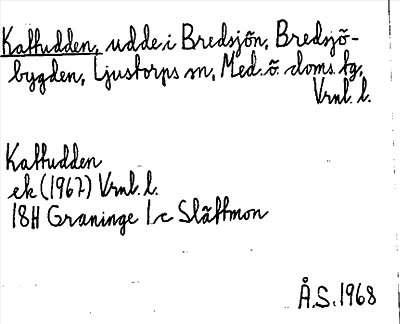 Kattudden, udde i Bredsjön, Bredsjö-
bygden, Ljustorps sn, Med. ö. doms. tg,
Vrnl. l.
Kattudden
ek (1967) Vrnl. l.
18H Graninge 1c Slättmon
Å.S. 1968